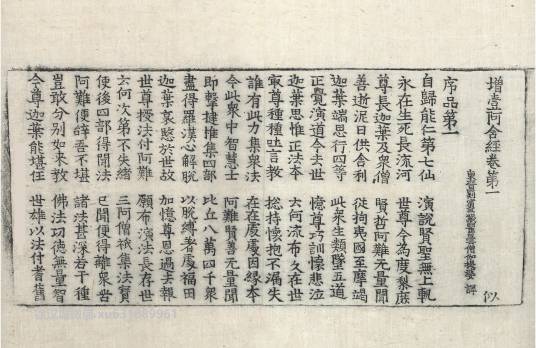 增壹阿含經卷第一
似
序品第一
自歸能仁第七仙 演說賢聖無上軌
永在生死長流河 世尊今為度黎庶
尊長迦葉及衆僧 賢哲阿難無量聞
善逝泥曰供舍利 從拘夷國至摩竭
迦葉端思行四等 此衆生類墜五道
正覺演道今去世 憶尊巧訓懷悲泣
迦葉思惟正法本 云何流布久在世
最尊種種吐言教 捴持懷抱不漏失
誰有此力集衆法 在在處處因緣本
今此衆中智慧士 阿難賢善無量聞
即擊揵椎集四部 比丘八萬四千衆
盡得羅漢心解脫 以脫縛著處福田
迦葉哀愍於世故 加憶尊恩過去報
世尊授法付阿難 願布演法長存世
云何次第不失緒 三阿僧祇集法寶
使後四部得聞法 已聞便得離衆苦
阿難便辭吾不堪 諸法甚深若干種
豈敢分別如來教 佛法功德無量智
今尊迦葉能堪任 世雄以法付耆舊